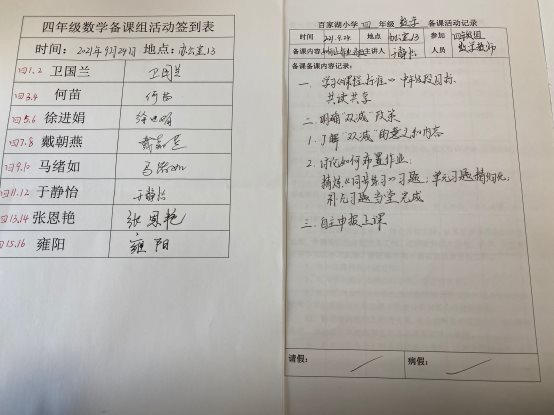 四年级数学备课组活动签到表
时间：2021年9月24日 地点：办公室13
四1.2 卫国兰 卫国兰
四3.4 何苗 何苗
四5.6 徐进娟 徐进娟
四7.8 戴朝燕 戴朝燕
四9.10 马绪如 马绪如
四11.12 于静怡 于静怡
四13.14 张恩艳 张恩艳
四15.16 雍阳 雍阳
百家湖小学 四 年级 数学 备课活动记录
时间 2021.9.24 地点 办公室13 参加人员 四年级组数学教师
备课内容 主讲人 于静怡
备课备课内容记录：
一、学习《课程标准》中年级段目标
共读共享
二、明确“双减”政策
1. 了解“双减”的意义和内容
2. 讨论如何布置作业
精炼《同步练习》习题；单元习题精细化
补充习题当堂完成
三、自主申报上课
请假： 病假：